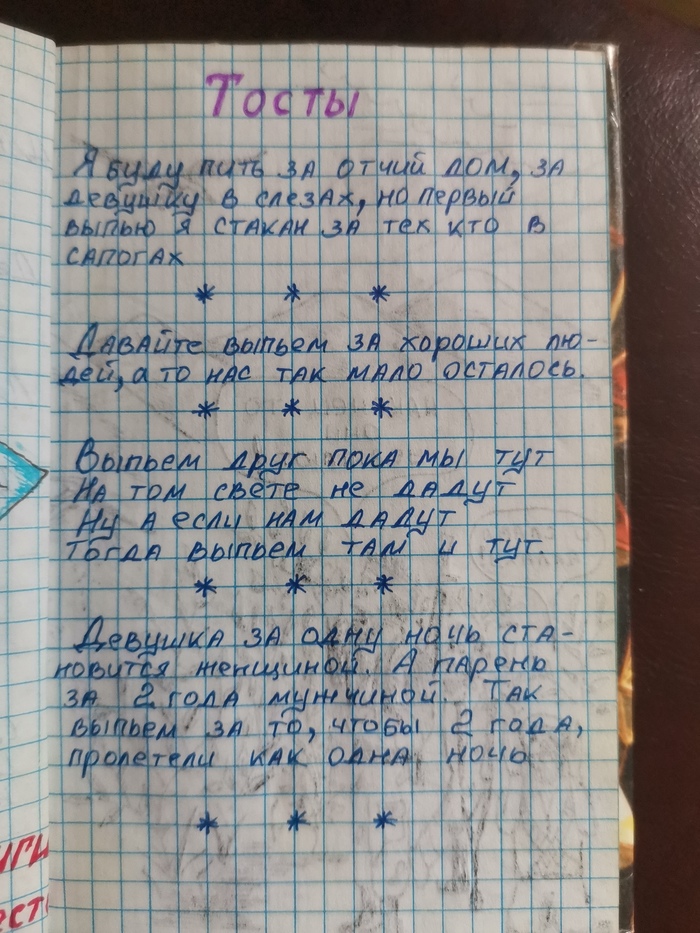 Тосты
Я буду пить за отчий дом, за
девушку в слезах, но первый
выпью я стакан за тех кто в
сапогах
* * *
Давайте выпьем за хороших лю-
дей, а то нас так мало осталось.
* * *
Выпьем друг пока мы тут
На том свете не дадут
Ну а если нам дадут
Тогда выпьем там и тут.
* * *
Девушка за одну ночь ста-
новится женщиной. А парень
за 2 года мужчиной. Так
выпьем за то, чтобы 2 года,
пролетели как одна ночь
* * *